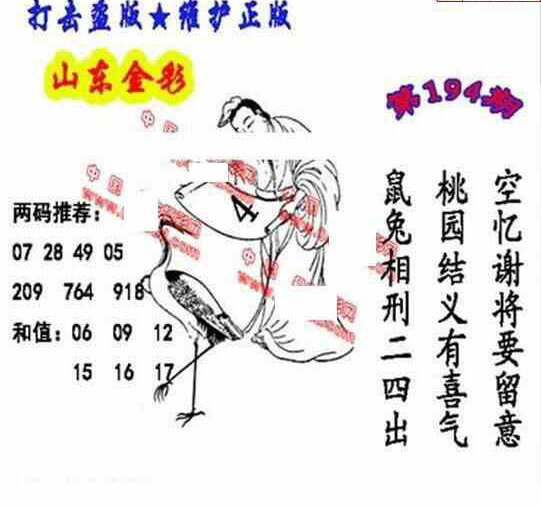 打击盗版★维护正版
山东金彩
第194期
空忆谢将要留意
桃园结义有喜气
鼠兔相刑二四出
4
两码推荐：
07 28 49 05
209 764 918
和值：06 09 12
15 16 17